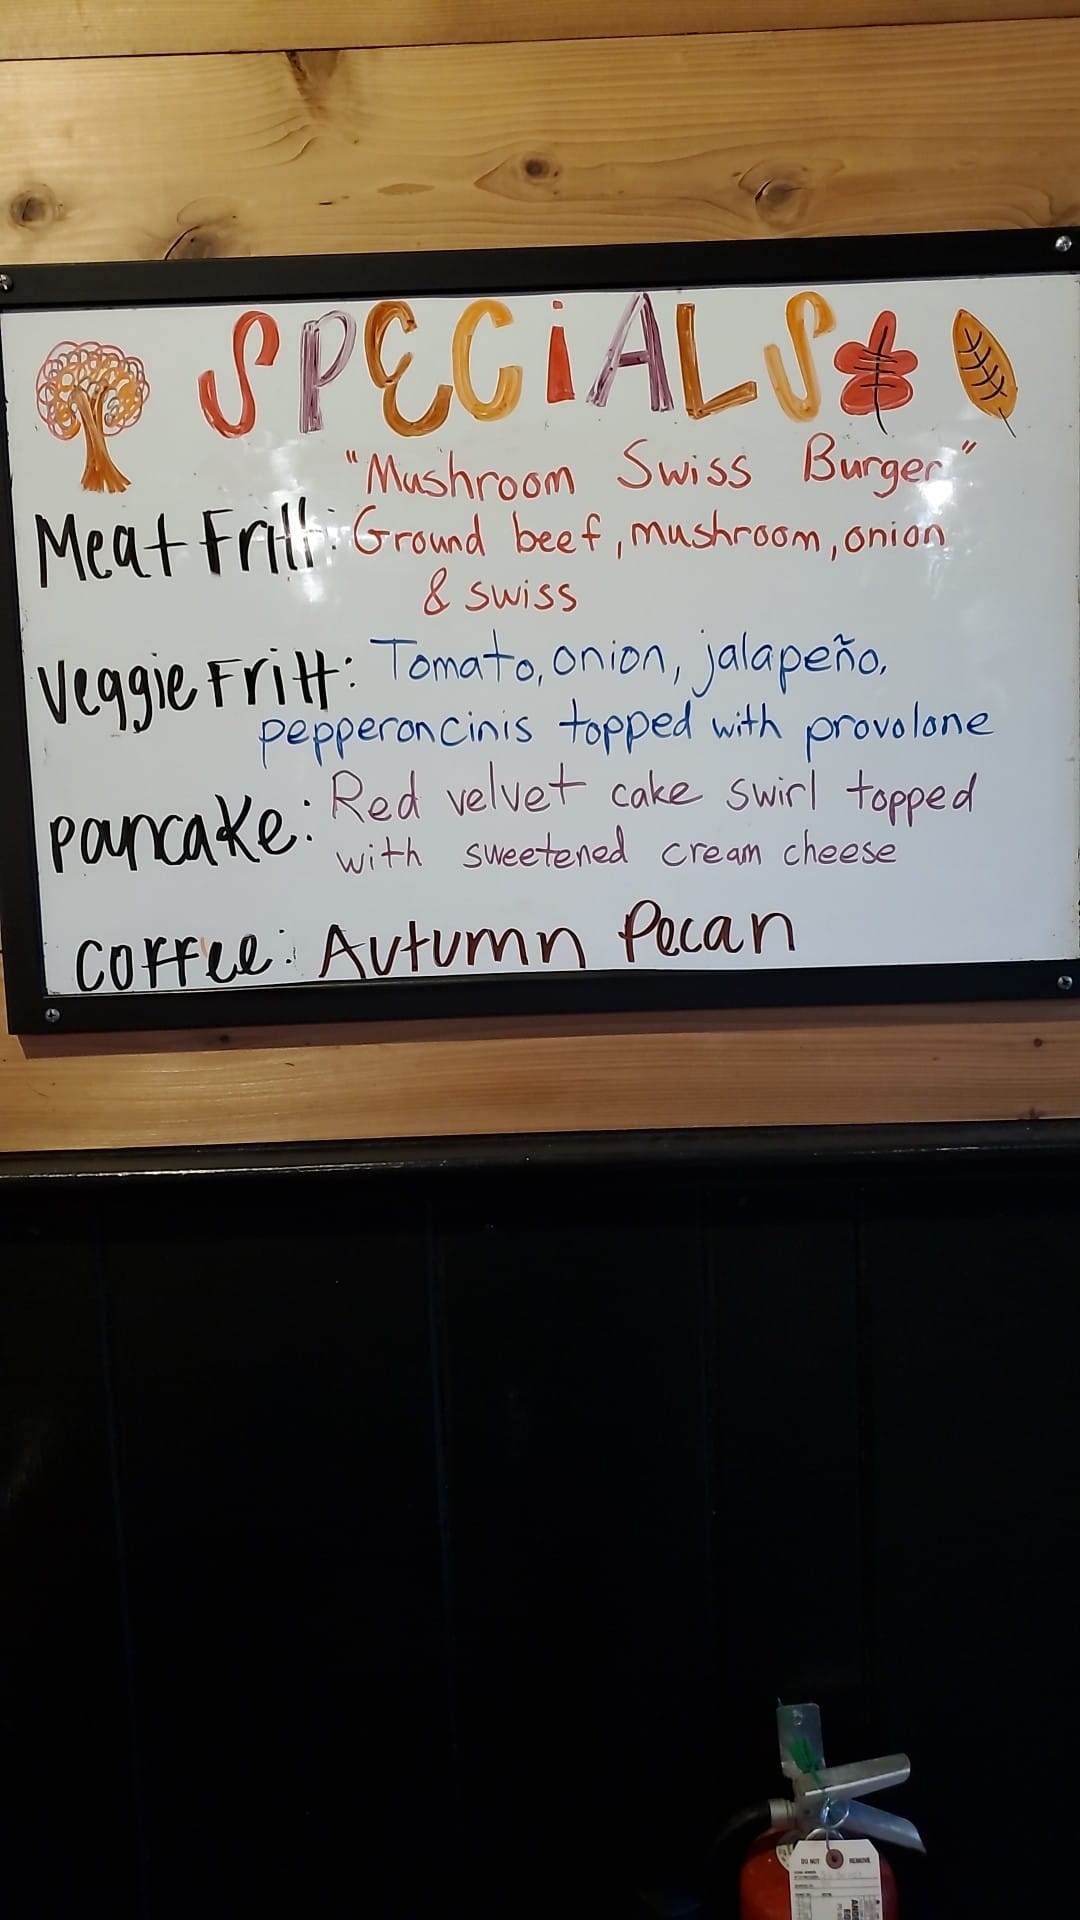 SPECiALS
"Mushroom Swiss Burger"
Meat Fritt: Ground beef, mushroom, onion
& swiss
Veggie Fritt: Tomato, onion, jalapeño,
pepperoncinis topped with provolone
pancake: Red velvet cake swirl topped
with sweetened cream cheese
coffee: Autumn Pecan
DO NOT REMOVE